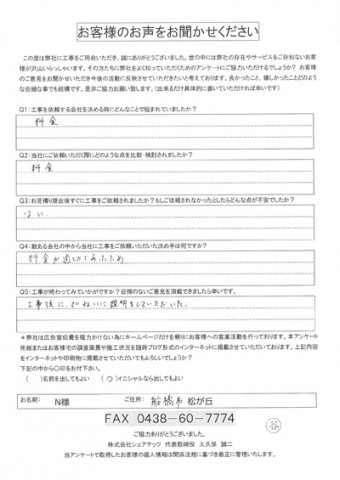 お客様のお声をお聞かせください
この度は弊社に工事をご用命いただき、誠にありがとうございました。世の中には弊社の存在やサービスをご存知ないお客
様が沢山いらっしゃいます。その方たちに弊社をよく知っていただくためのアンケートにご協力いただけるでしょうか？ お客様
のご意見をお聞かせいただき今後の活動に反映させていただきたいと考えております。良かったこと、嬉しかったことどのよう
な些細な事でも結構です。是非ご協力お願い致します。（出来るだけ具体的に書いていただければ幸いです）
Q1：工事を依頼する会社を決める時にどんなことで悩まれていましたか？
料金
Q2：当社にご依頼いただく際にどのような点を比較・検討されましたか？
料金
Q3：お見積り提出後すぐに工事をご依頼されましたか？もしご依頼されなかったとしたらどんな点が不安でしたか？
ない
Q4：数ある会社の中から当社に工事をご依頼いただいた決め手は何ですか？
料金が適切であったため
Q5：工事が終わってみていかがですか？忌憚のないご意見を頂戴できましたら幸いです。
工事後に、ていねいに説明をしていただいた。
＊弊社は広告宣伝費を極力かけない為にホームページだけを頼りにお客様への営業活動を行っております。本アンケート
用紙またはお客様宅の調査風景や施工状況を随時ブログ形式のインターネットに掲載させていただいております。上記内容
をインターネットや印刷物に掲載させていただいてもよろしいでしょうか？
下記の中から〇印をお付下さい。
（　）名前を出してもよい （〇）イニシャルなら出してもよい
お名前： N様 ご住所： 船橋市 松が丘
FAX 0438-60-7774
谷
ご協力ありがとうございました。
株式会社シェアテック 代表取締役 大久保 誠二
当アンケートで取得したお客様の個人情報は関係法規に基づき厳正に管理いたします。